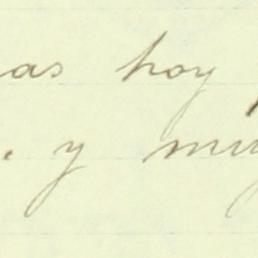 as hoy
. y mu